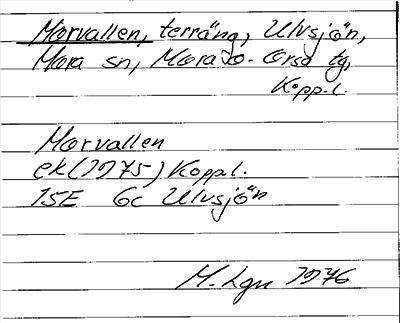 Morvallen, terräng, Ulvsjön,
Mora sn, Mora o. Orsa tg,
Kopp.l.
Morvallen
ek (1975) Koppl.
15E 6c Ulvsjön
M. Lgn 1976